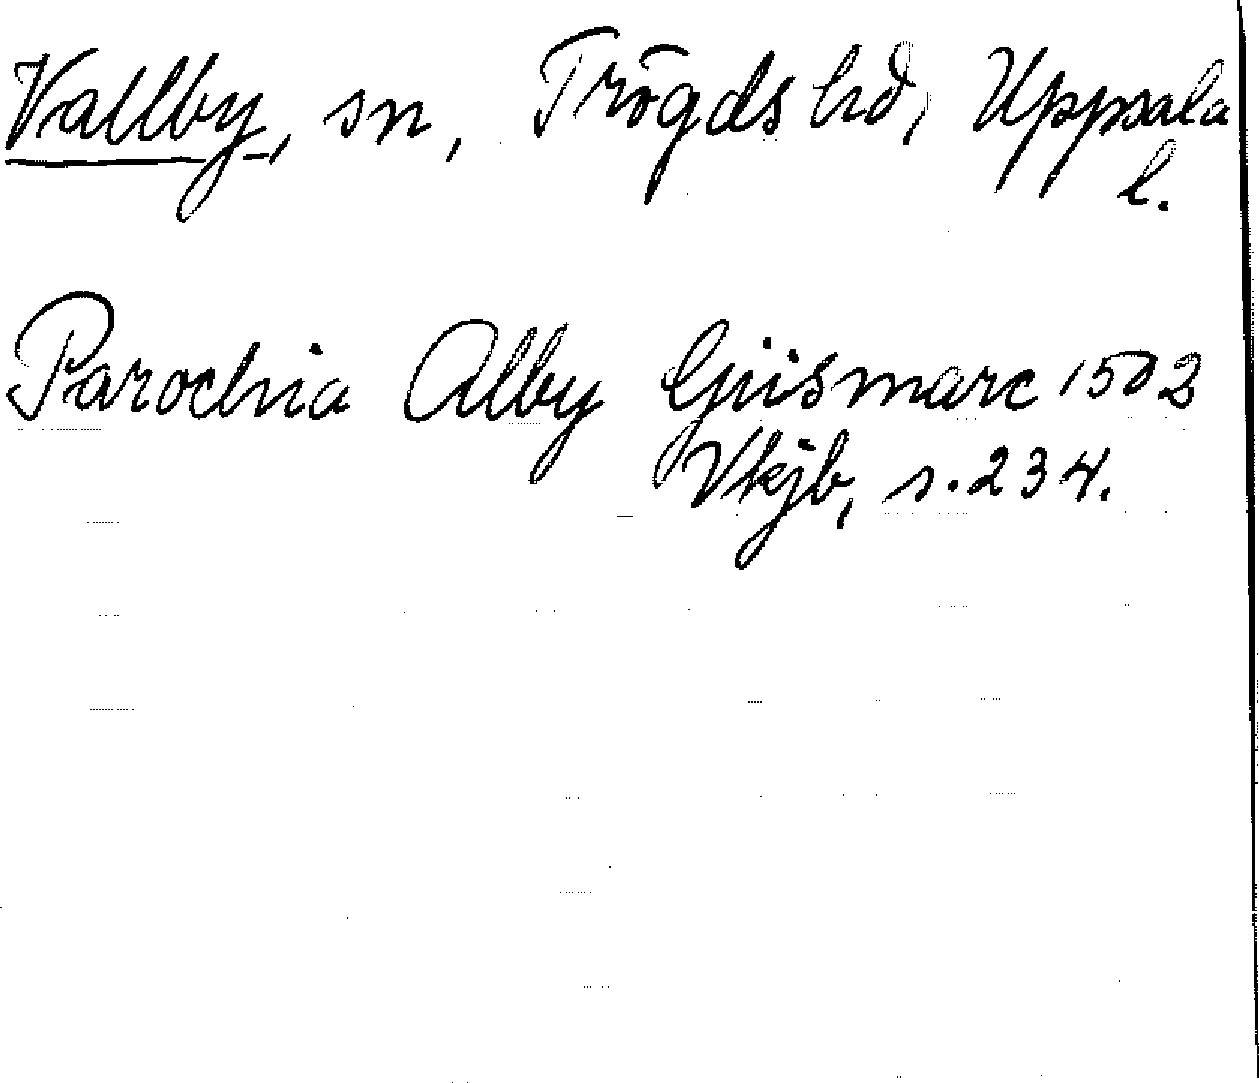 Vallby, sn, Trögds hd, Uppsala
l.
Parochia Alby Giismarc 1502
Vkjb, s. 234.